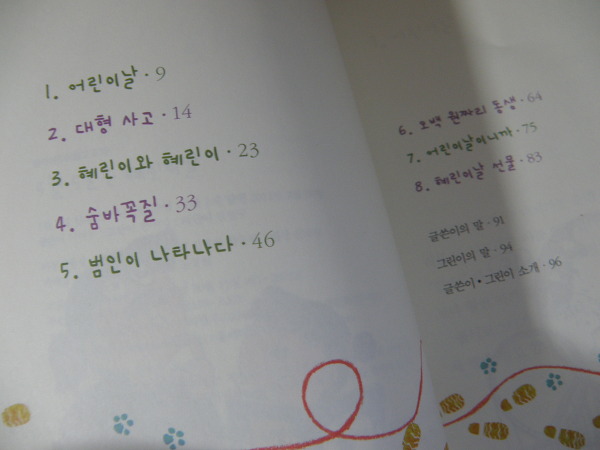 1. 어린이날 · 9
2. 대형 사고 · 14
3. 혜린이와 혜린이 · 23
4. 숨바꼭질 · 33
5. 범인이 나타나다 · 46
6. 오백 원짜리 동생 · 64
7. 어린이날이니까 · 75
8. 혜린이날 선물 · 83
글쓴이의 말 · 91
그린이의 말 · 94
글쓴이 · 그린이 소개 · 96